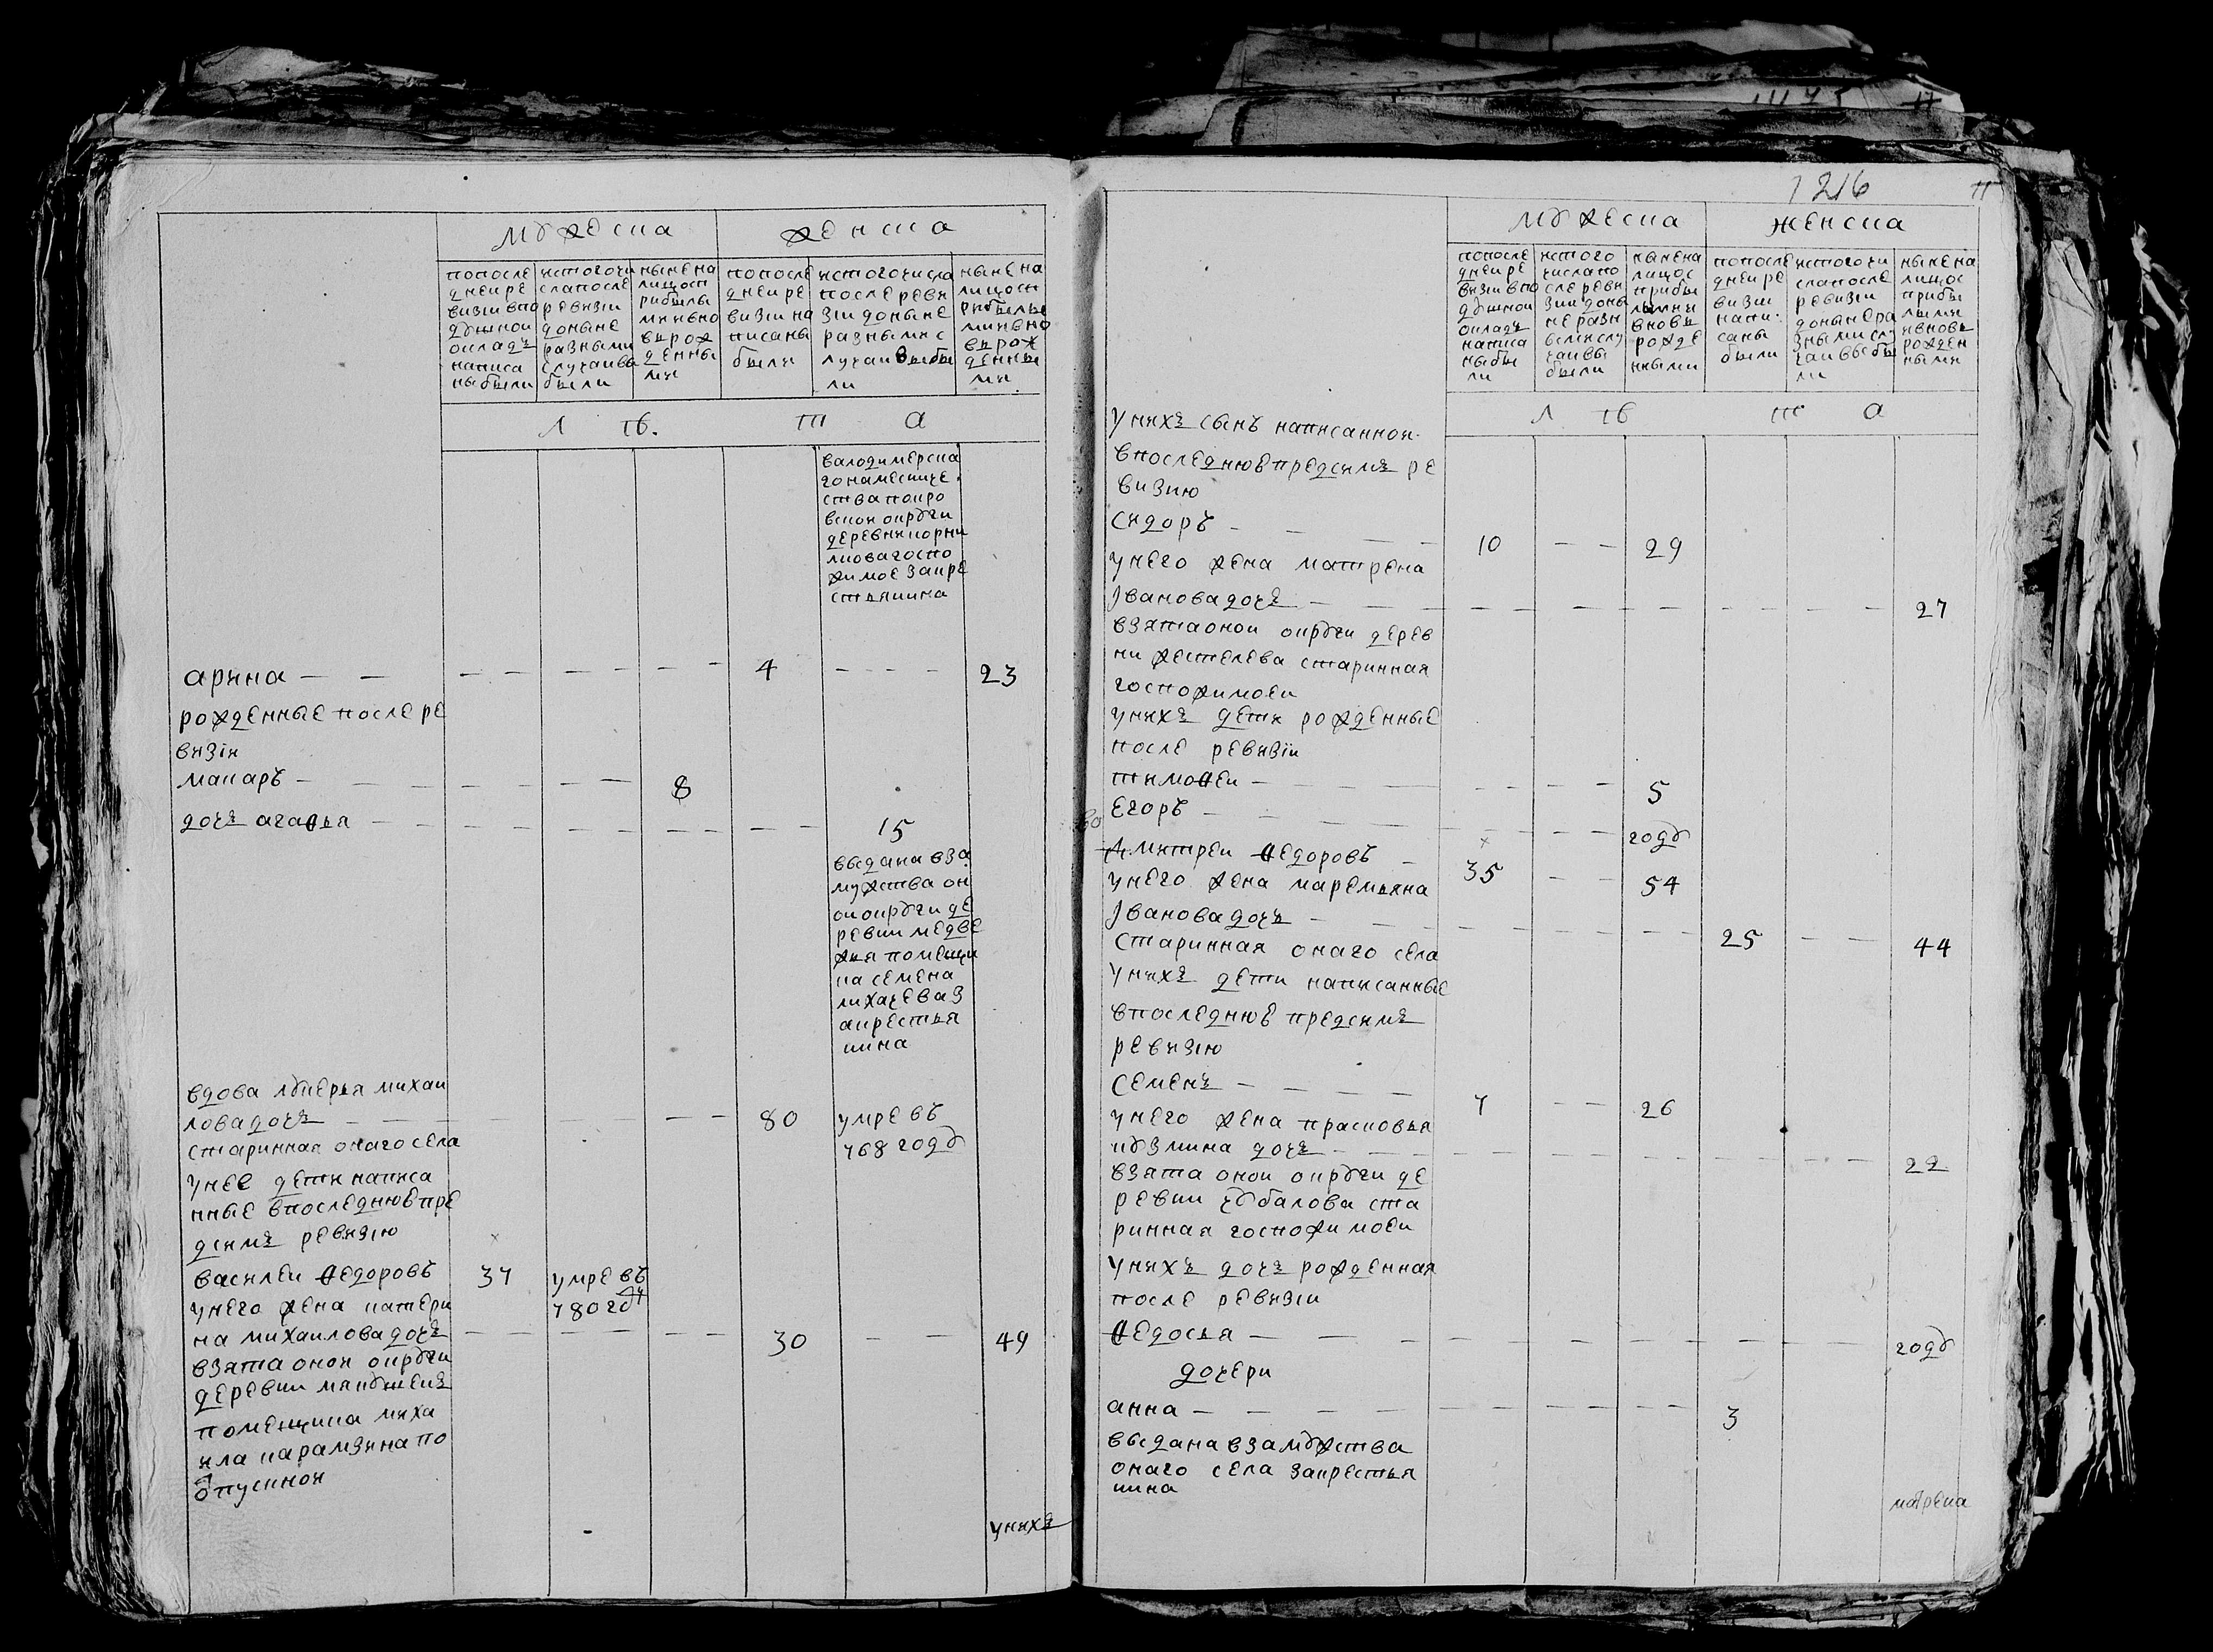 мужеска
женска
попосле
днеи ре
визiи впо
душнои
окладъ
написа
ны были
истогочи
сла после
ревизiи
доныне
разными
случаи вы
были
ныне на
лицо сп
рибылы
ми вно
вь рож
денны
ми
попосле
днеи ре
визiи на
писаны
были
истого числа
после реви
зiи доныне
разными с
лучаи выбы
ли
ныне на
лицо сп
рибылы
ми вно
вь рож
денны
ми
л ѣ т а
валодимерска
го намесниче
ства покро
вскои округи
деревни корни
лкова госпо
жи мое закре
стьянина
арина — — 4 — 23
рожденные после ре
визiи
макаръ — 8
дочь агафья — 15
выдана вза
мужства он
ои округи де
ревни медве
жья помещи
ка семена
лихачева з
а крестья
нина
вдова лукерья михаи
лова дочь — 80 умре въ
старинная онаго села 768 году
у нее дети написа
нные впоследнюю пре
дсимъ ревизiю
василеи федоровъ 37 умре въ
у него жена катери 780 гду
на михаилова дочь — 30 — 49
взята онои округи
деревни макушеиз
помещика миха
ила карамзина по
отпускнои
у нихъ
1216
11
мужеска
женска
попосле
днеи ре
визiи впо
душнои
окладъ
написа
ны бы
ли
истого
числа по
сле реви
зiи доны
не разн
ыми слу
чаи вы
были
ныне на
лицо с
прибы
лыми
вновь
рожде
нными
попосле
днеи ре
визiи
напи
саны
были
истого чи
сла после
ревизiи
доныне ра
зными слу
чаи выбы
ли
ныне на
лицо с
прибы
лыми
и вновь
рожден
ными
л ѣ т а
у нихъ сынъ написаннои
впоследнюю предсимъ ре
визию
сидоръ — 10 — 29
у него жена матрена
Iванова дочь — 27
взята онои округи дерев
ни жестелева старинная
госпожи моеи
у нихъ дети рожденные
после ревизiи
тимофеи — 5
егоръ — году
дмитреи федоровъ — 35 — 54
у него жена маремьяна
Iванова дочь — 25 — 44
старинная онаго села
у нихъ дети написанные
впоследнюю предсимъ
ревизiю
семенъ — 7 — 26
у него жена прасковья
кузмина дочь — 22
взята онои округи де
ревни чубалова ста
ринная госпожи моеи
у нихъ дочь рожденная
после ревизiи
федосья — году
дочери
анна — 3
выдана взамужства
онаго села за крестья
нина
матрена